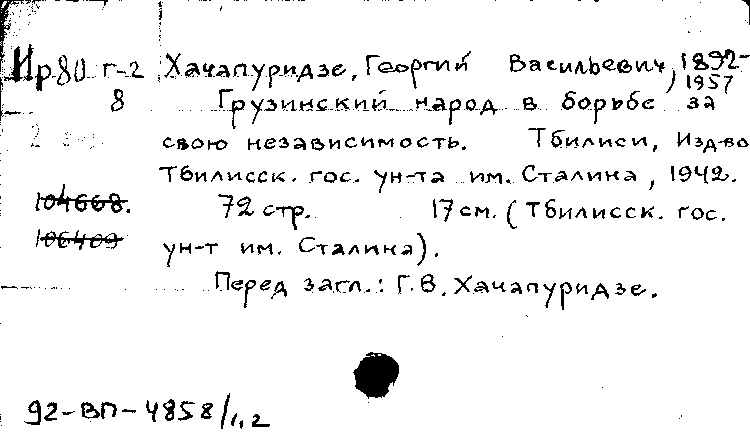 Ир80 г-2 Хачапуридзе, Георгий Васильевич, 1892-
1957
8 Грузинский народ в борьбе за
свою независимость. Тбилиси, Изд-во
Тбилисск. гос. ун-та им. Сталина, 1942.
104668. 72 стр. 17 см. (Тбилисск. гос.
106409 ун-т им. Сталина).
Перед загл.: Г.В. Хачапуридзе.
92-ВП-4858/1,2